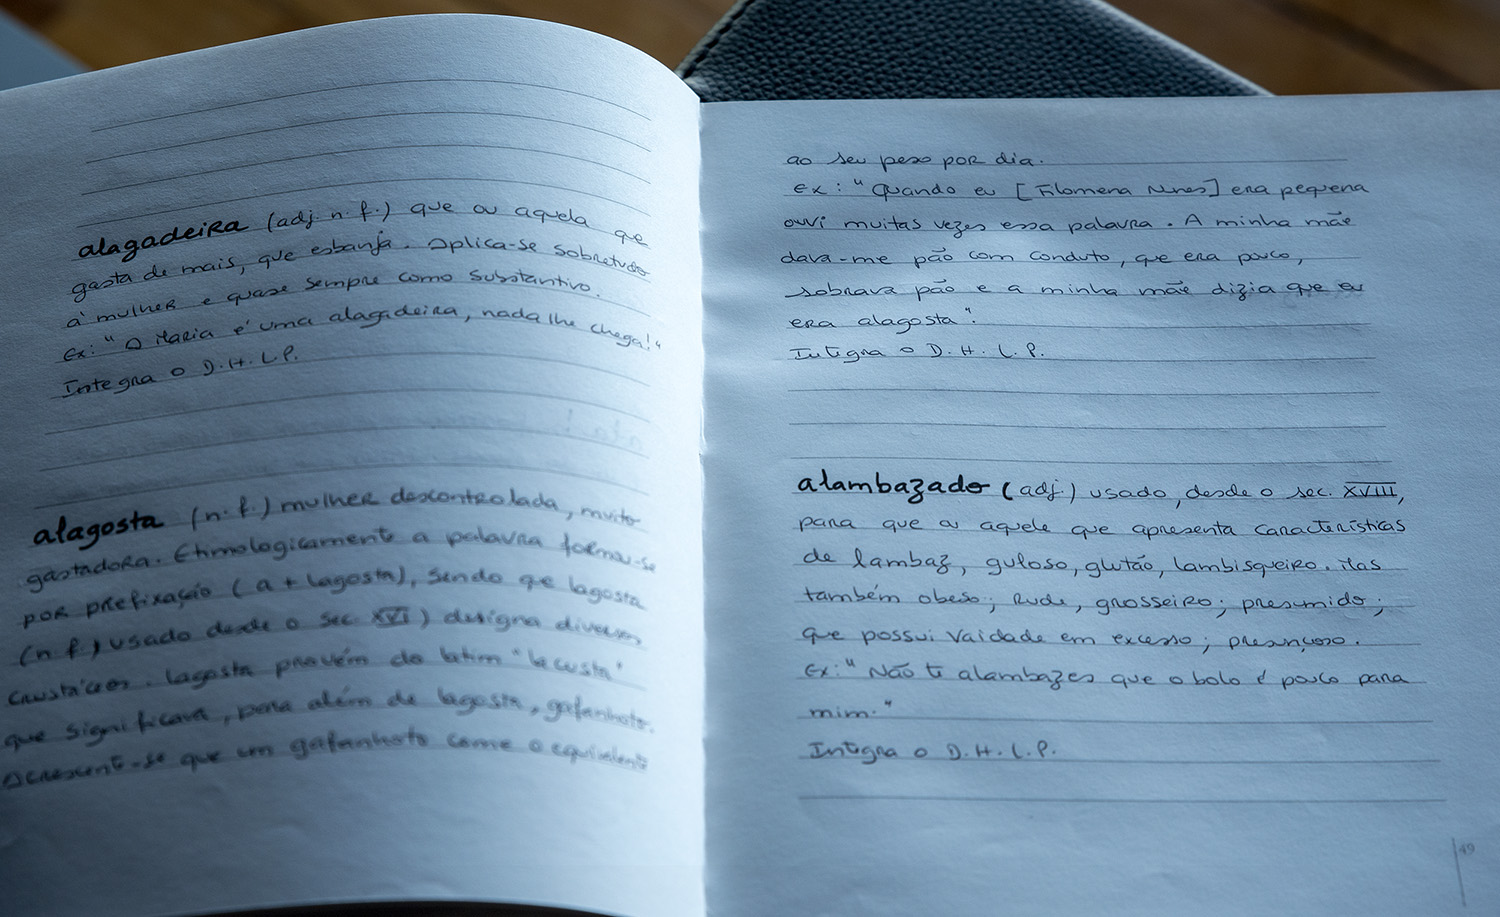 alagadeira (adj. n. f.) que ou aquela que
gasta de mais, que esbanja. Aplica-se sobretudo
à mulher e quase sempre como substantivo.
Ex: "A Maria é uma alagadeira, nada lhe chega!"
Integra o D.H.L.P.
alagosta (n. f.) mulher descontrolada, muito
gastadora. Etimologicamente a palavra formou-se
por prefixação (a + lagosta), sendo que lagosta
(n f.) usado desde o sec. XVI) designa diversos
crustáceos. lagosta provém do latim "locusta"
que significava, para além de lagosta, gafanhoto.
Acrescente-se que um gafanhoto come o equivalente
ao seu peso por dia.
Ex: "Quando eu [Filomena Nunes] era pequena
ouvi muitas vezes essa palavra. A minha mãe
dava-me pão com conduto, que era pouco,
sobrava pão e a minha mãe dizia que eu
era alagosta".
Integra o D.H.L.P.
alambazado (adj.) usado, desde o sec. XVIII,
para que ou aquele que apresenta características
de lambaz, guloso, glutão, lambisqueiro. Mas
também obeso; rude, grosseiro; presumido;
que possui vaidade em excesso; presunçoso.
Ex: "Não te alambazes que o bolo é pouco para
mim."
Integra o D.H.L.P.
49